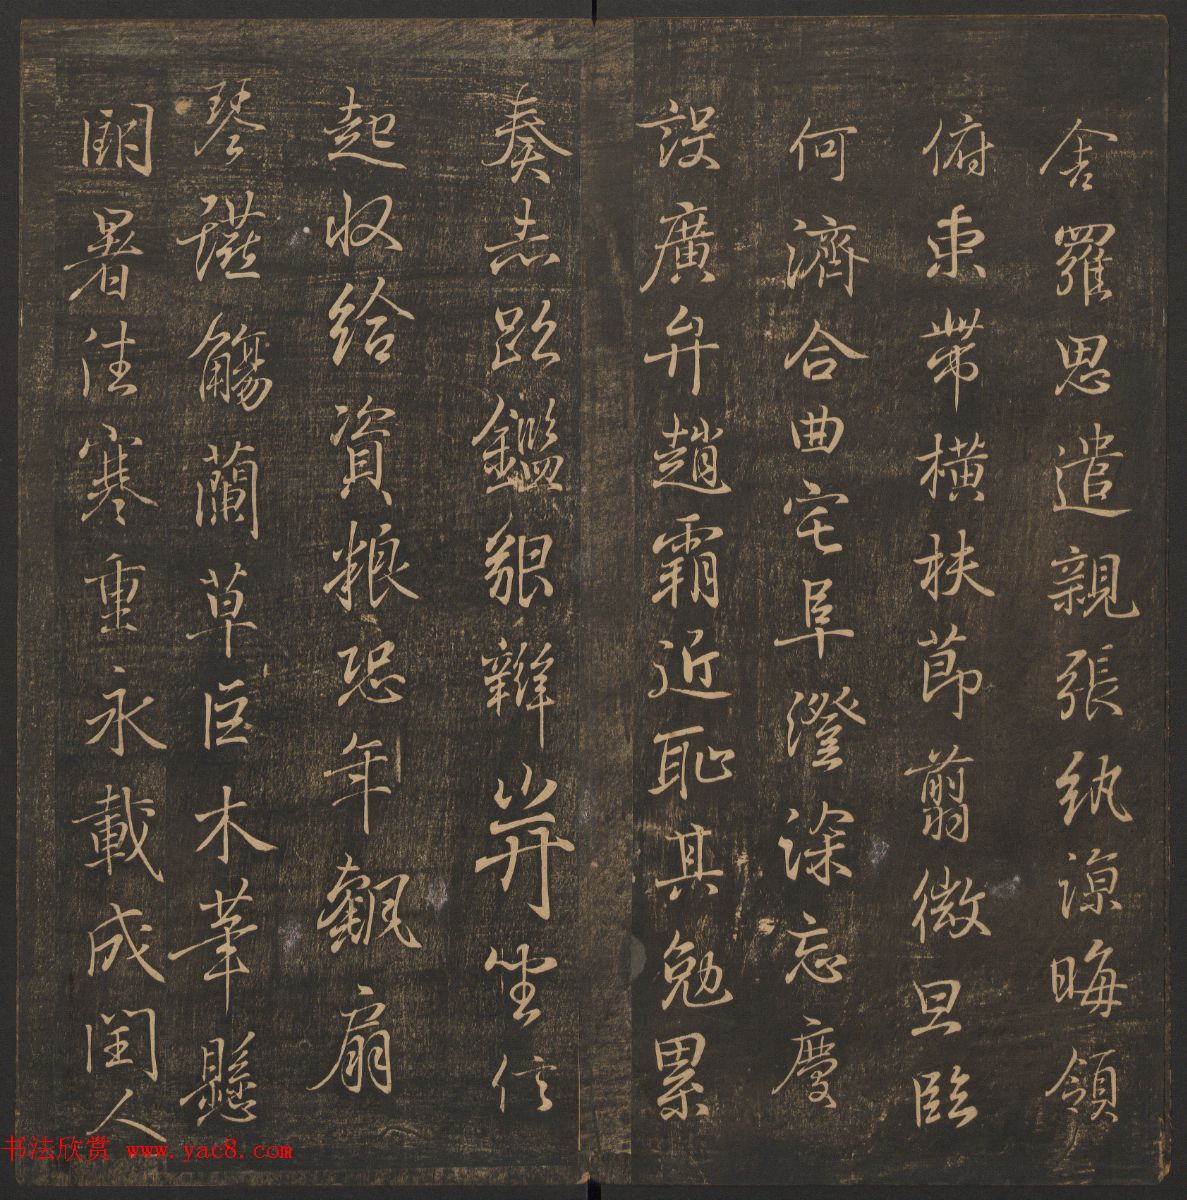 舍羅思遣親張紈涼晦領
俯束帶橫扶節翦微旦臨
何濟合曲宅阜澄深忘慶
設廣弁趙霸近恥其勉累
奏志跎鑑貌辨幷坐信
起收給資粮恐年觀扇
琴琎觴蘭草臣木華懸
閏暑往寒重永載成閏人
书法欣赏 www.yac8.com